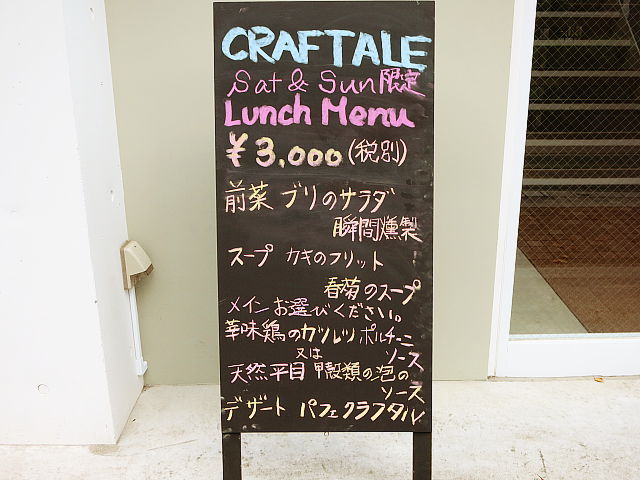 CRAFTALE
Sat & Sun限定
Lunch Menu
¥3,000(税別)
前菜 ブリのサラダ
瞬間燻製
スープ カキのフリット
春菊のスープ
メインお選びください。
華味鶏のカツレツ ポルチーニ
又は ソース
天然平目 甲殻類の泡の
ソース
デザート パフェクラフタル